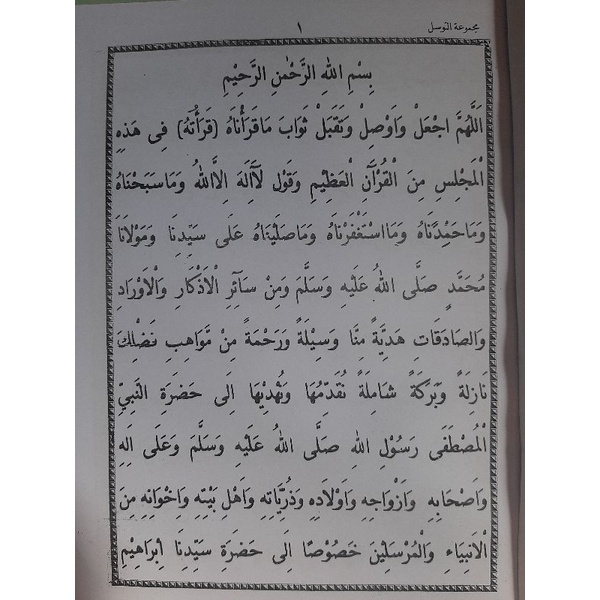 مجموعة التوسل
١
بِسْمِ اللهِ الرَّحْمٰنِ الرَّحِيْمِ
اَللّٰهُمَّ اجْعَلْ وَاَوْصِلْ وَتَقَبَّلْ ثَوَابَ مَاقَرَأْنَاهُ (قَرَأْتُهُ) فِى هَذِهِ
الْمَجْلِسِ مِنَ الْقُرْآنِ الْعَظِيْمِ وَقَوْلِ لَآاِلَهَ اِلَّااللهُ وَمَاسَبَّحْنَاهُ
وَمَاحَمِدْنَاهُ وَمَااسْتَغْفَرْنَاهُ وَمَاصَلَّيْنَاهُ عَلَى سَيِّدِنَا وَمَوْلَانَا
مُحَمَّدٍ صَلَّى اللهُ عَلَيْهِ وَسَلَّمَ وَمِنْ سَآئِرِ الْاَذْكَارِ وَالْاَوْرَادِ
وَالصَادَقَاتِ هَدِيَّةً مِنَّا وَسِيْلَةً وَرَحْمَةً مِنْ مَّوَاهِبِ فَضْلِكَ
نَازِلَةً وَبَرَكَةً شَامِلَةً نُقَدِّمُهَا وَنُهْدِيْهَا اِلَى حَضَرَةِ النَّبِيِّ
الْمُصْطَفَى رَسُوْلِ اللهِ صَلَّى اللهُ عَلَيْهِ وَسَلَّمَ وَعَلَى آلِهِ
وَاَصْحَابِهِ وَاَزْوَاجِهِ وَاَوْلَادِهِ وَذُرِّيَّاتِهِ وَاَهْلِ بَيْتِهِ وَاِخْوَانِهِ مِنَ
الْاَنْبِيَاءِ وَالْمُرْسَلِيْنَ خُصُوْصًا اِلَى حَضَرَةِ سَيِّدِنَا اِبْرَاهِيْمِ